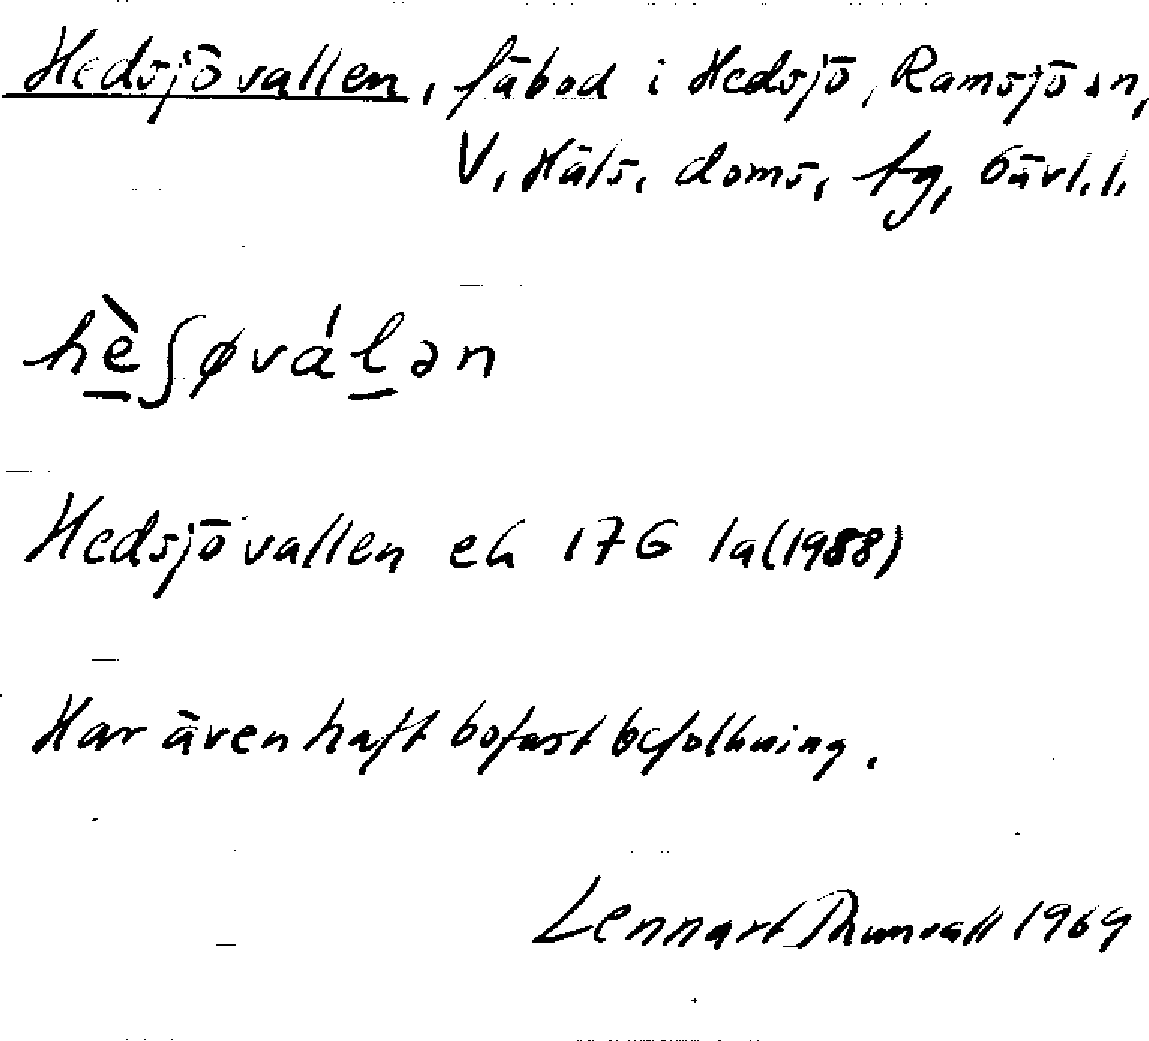 Hedsjövallen, fäbod i Hedsjö, Ramsjö sn,
V. Häls. doms. tg, Gävl. l.
hèʃøválən
Hedsjövallen ek 17G 1a(1988)
Har även haft bofast befolkning.
Lennart Thunvall 1969